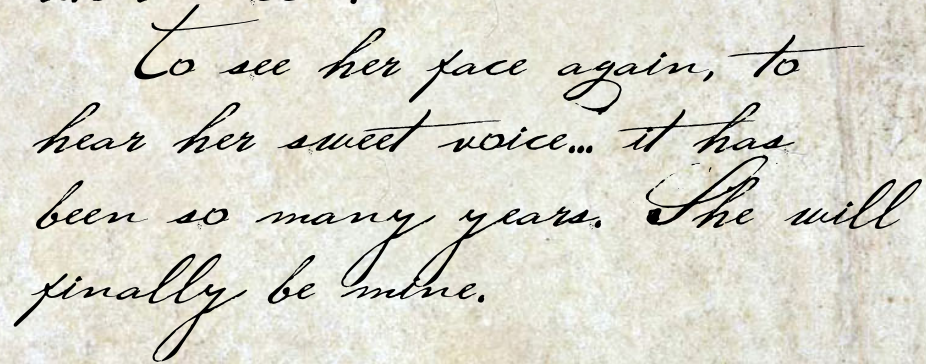 To see her face again, to
hear her sweet voice... it has
been so many years. She will
finally be mine.